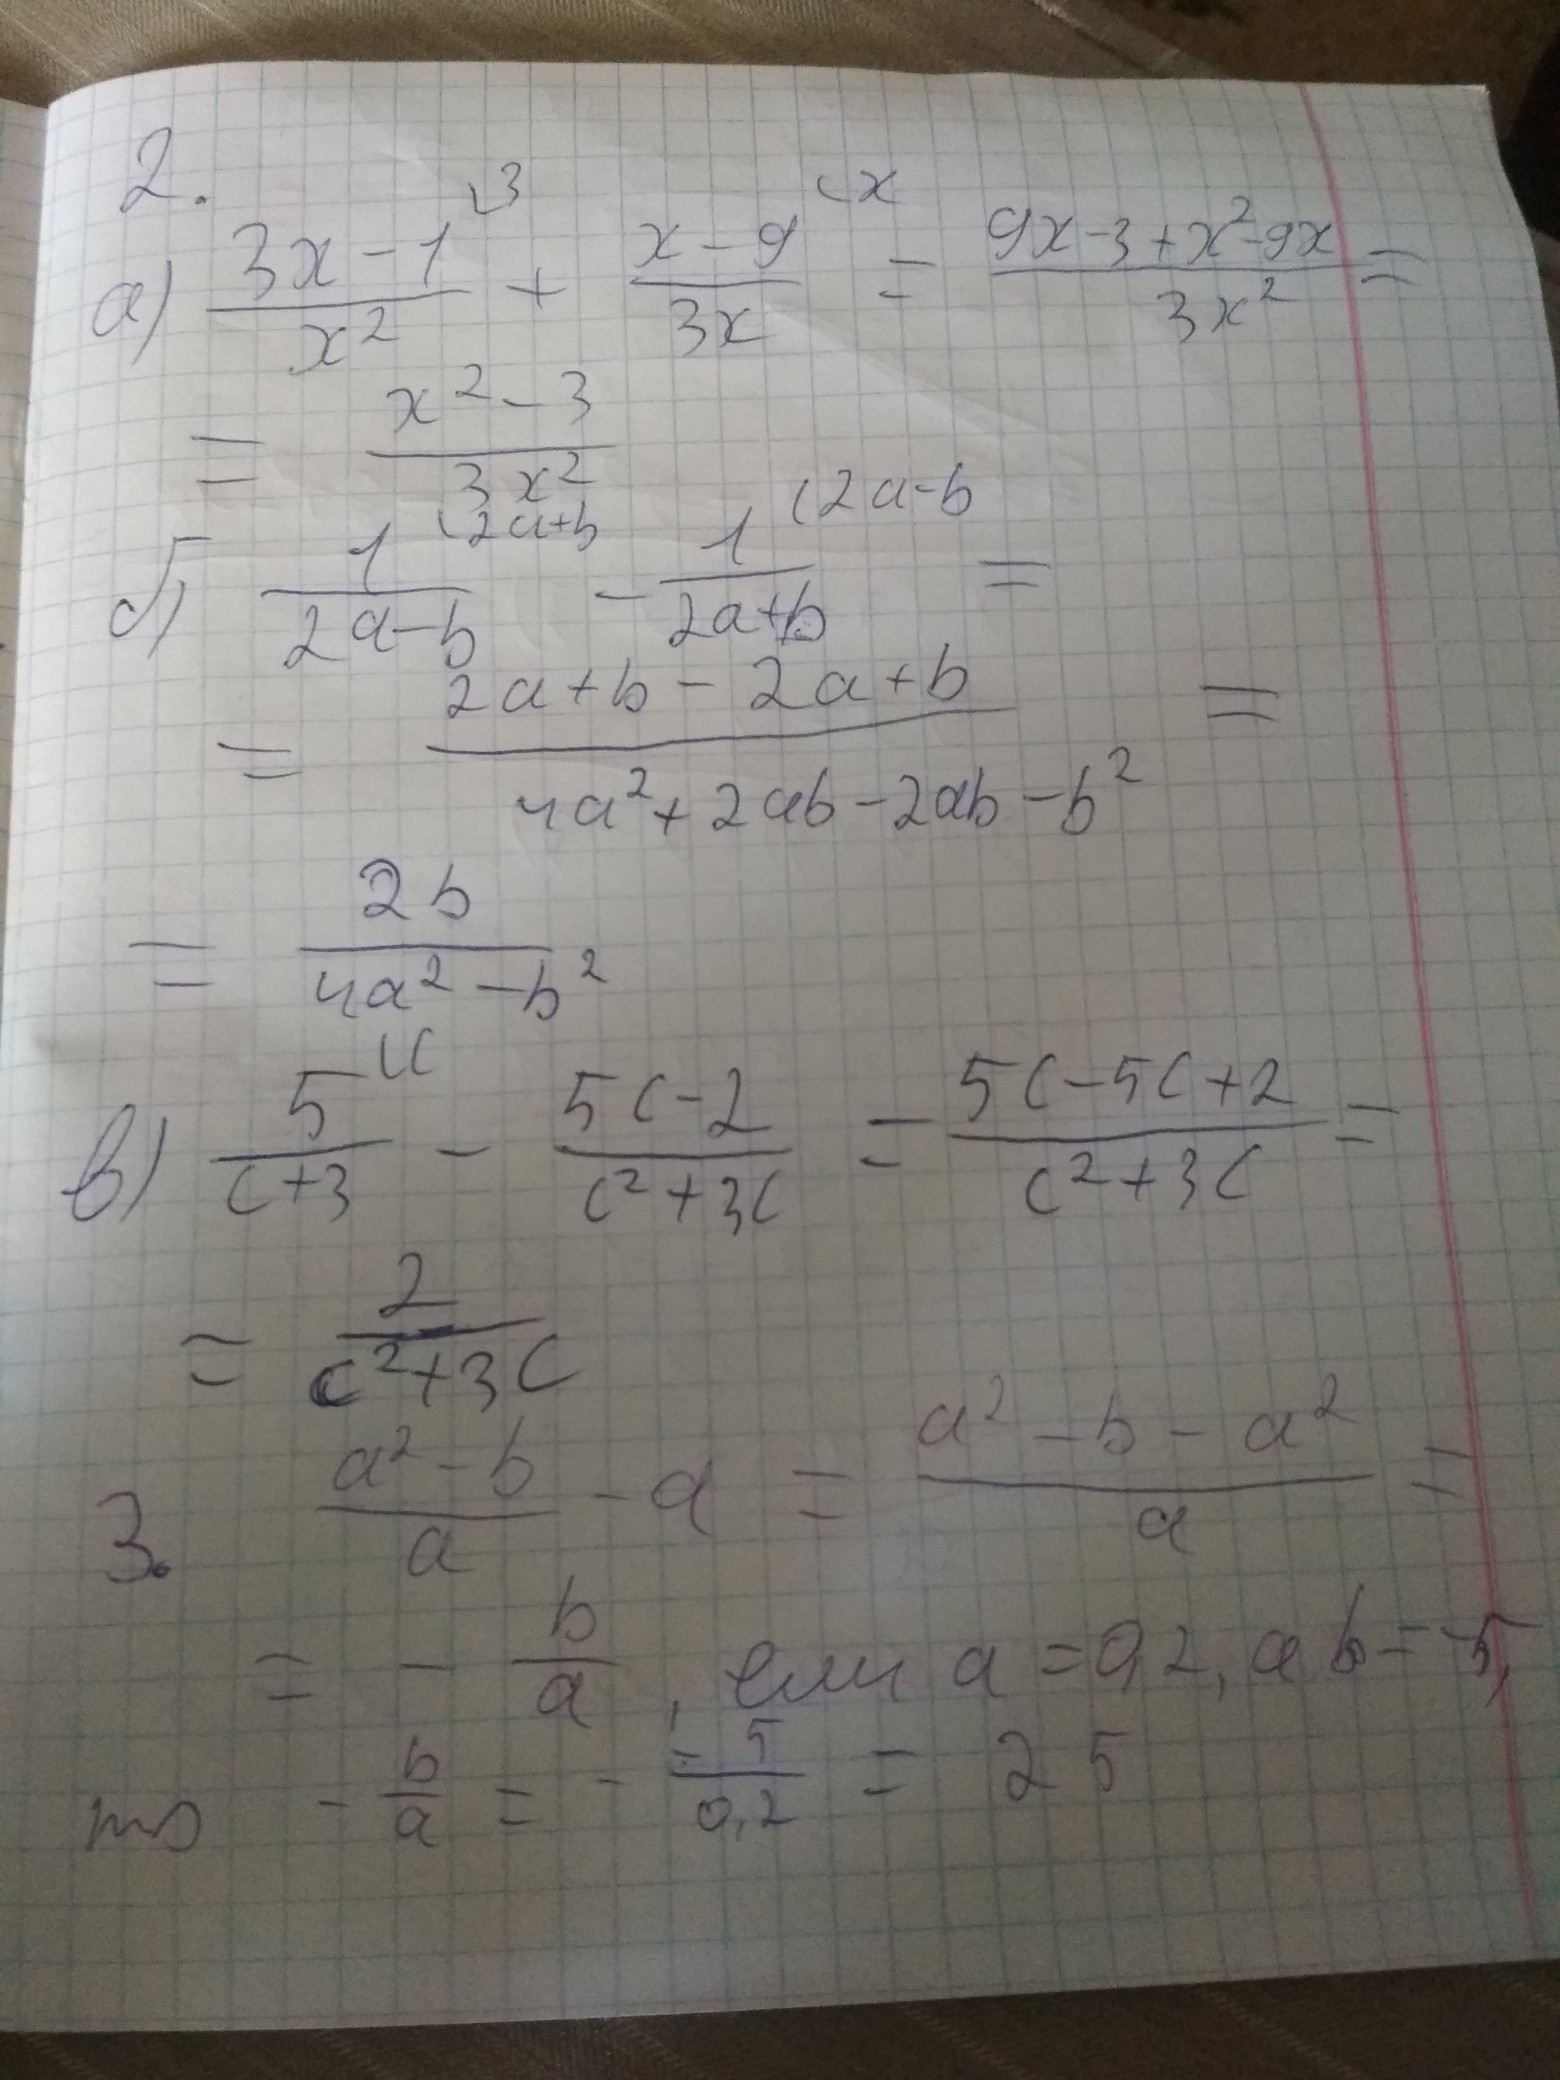 2.
а) (3x-1)/x² ⁽³ + (x-9)/3x ⁽ˣ = (9x-3+x²-9x)/3x² =
= (x²-3)/3x²
б) 1/(2a-b) ⁽²ᵃ⁺ᵇ - 1/(2a+b) (2a-b =
= (2a+b-2a+b)/(4a²+2ab-2ab-b²) =
= 2b/(4a²-b²)
в) 5/(c+3) (c - (5c-2)/(c²+3c) = (5c-5c+2)/(c²+3c) =
= 2/(c²+3c)
3. (a²-b)/a - a = (a²-b-a²)/a =
= - b/a, если a=0,2, а b=-5,
то - b/a = - -5/0,2 = 25